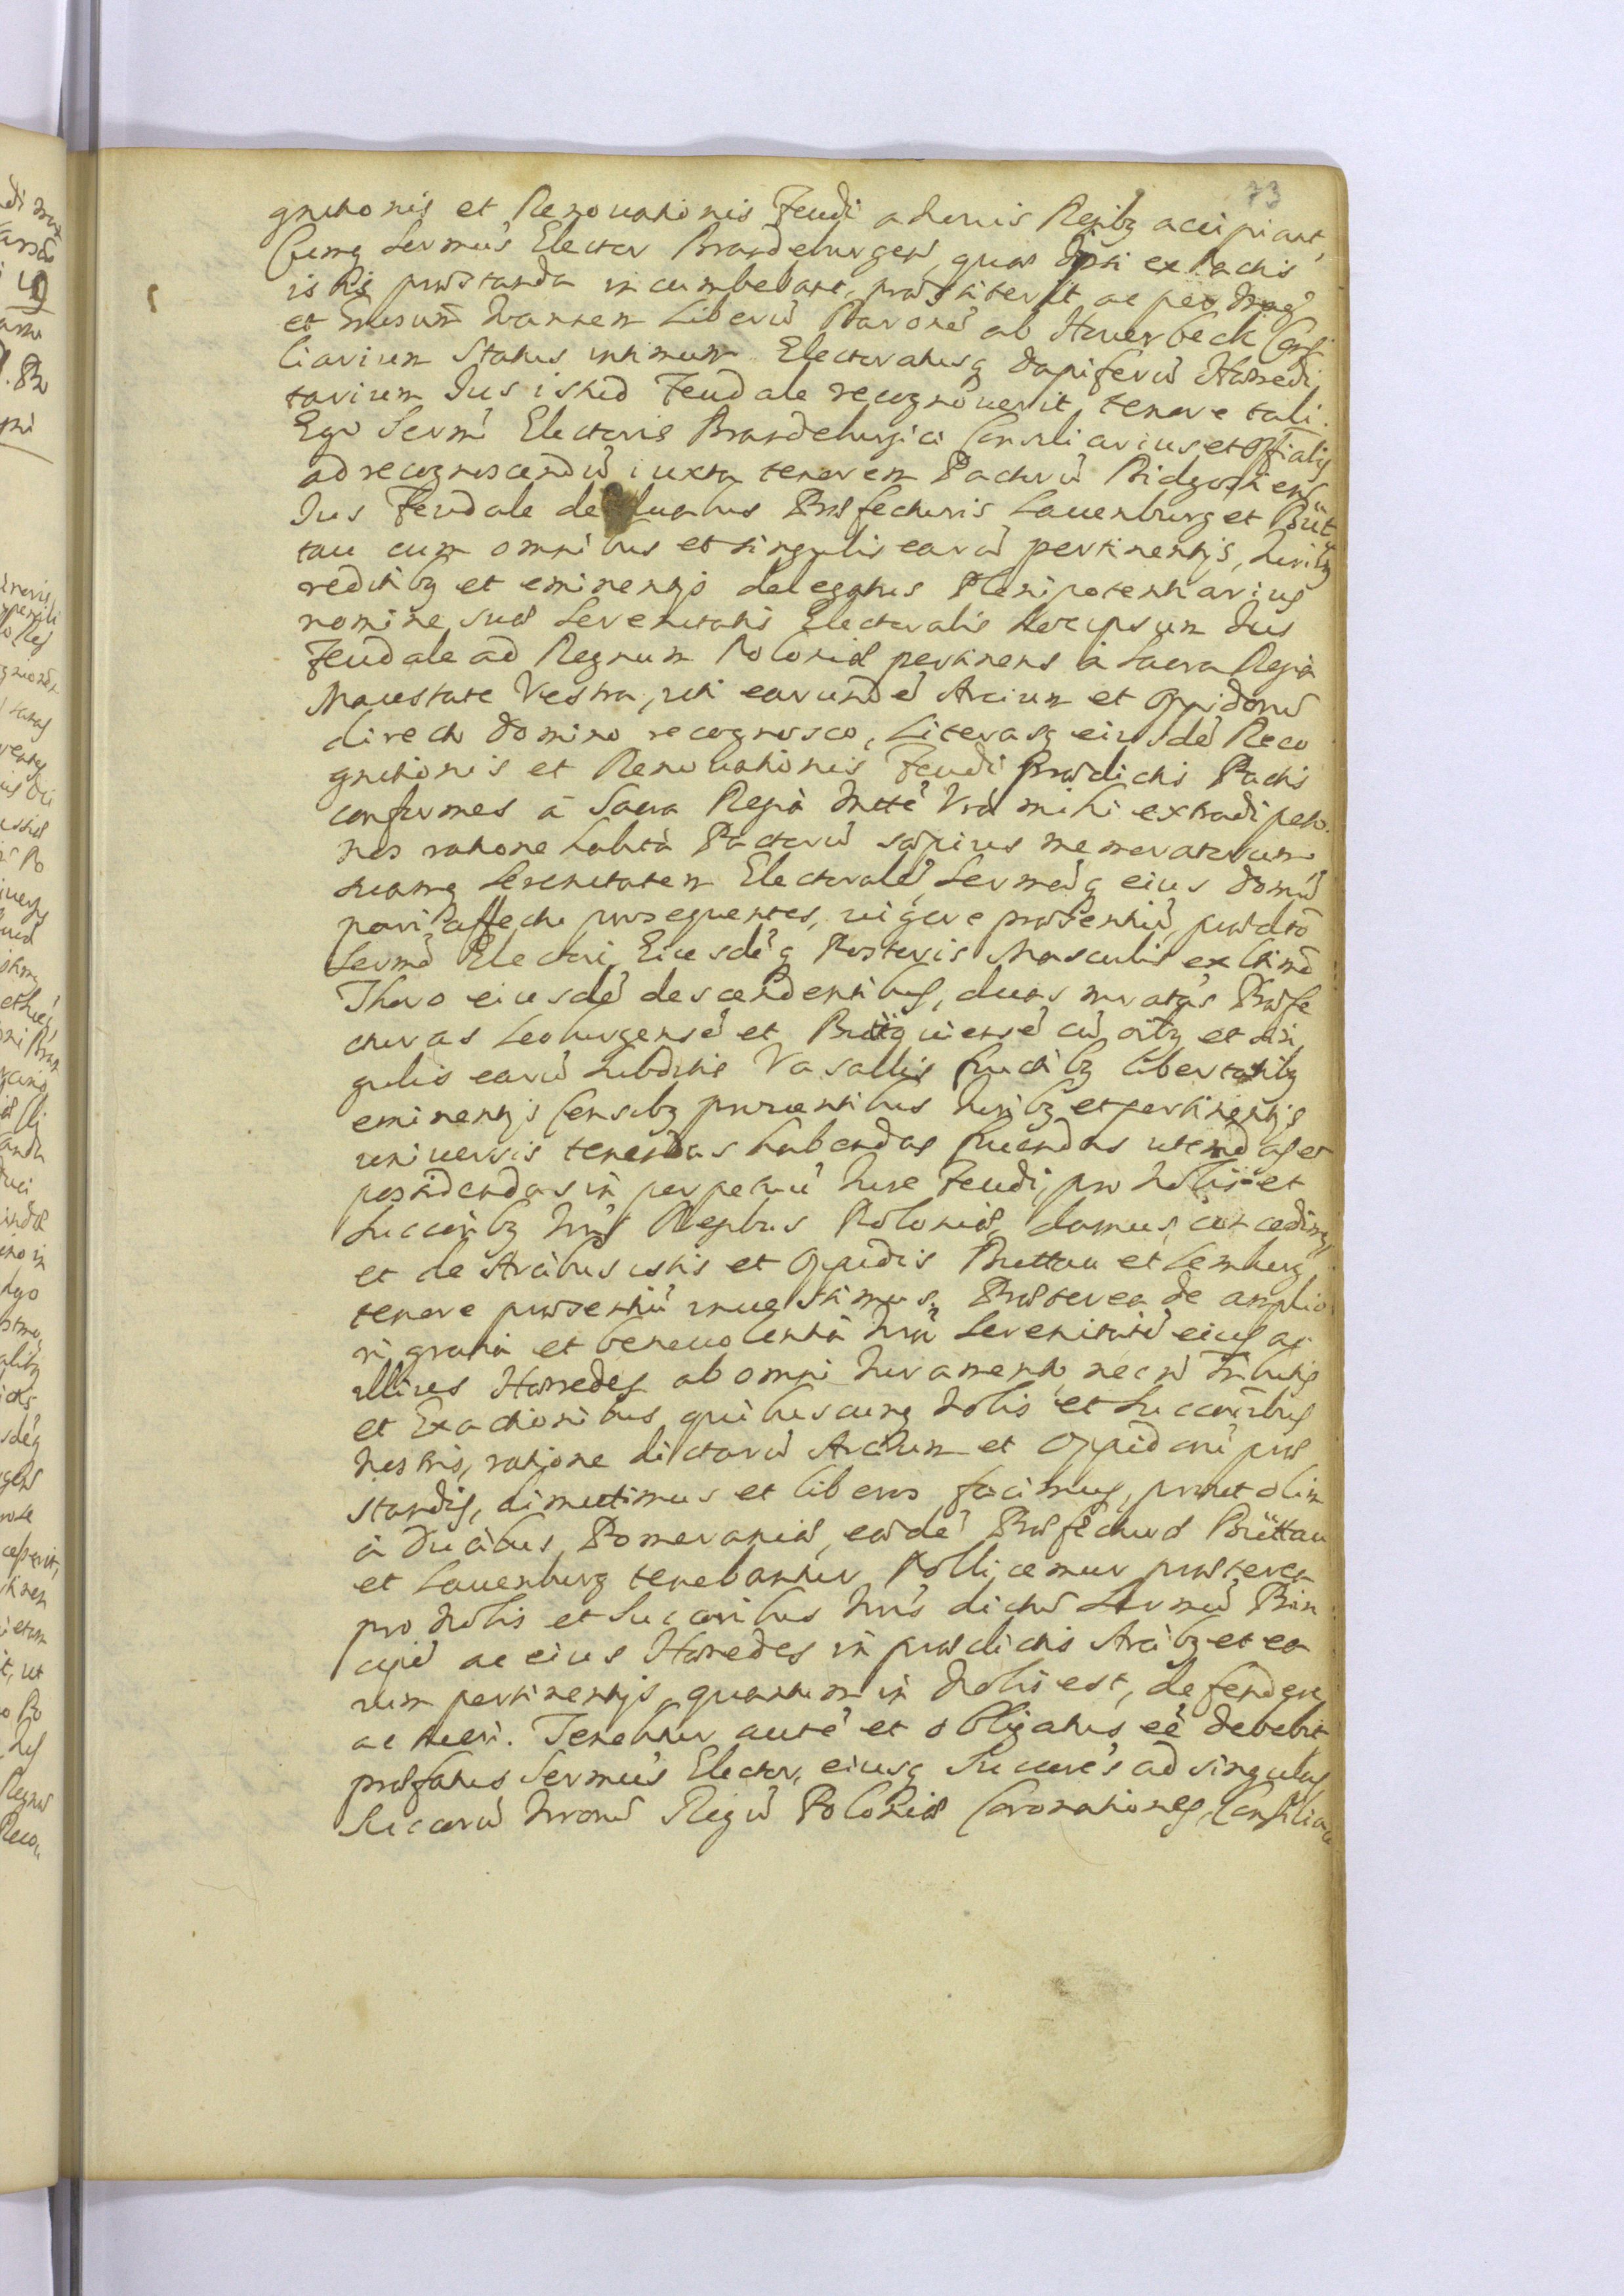 73
gnitionis et Renovationis Feudi a novis Regibꝫ accipiant,
Cumq Sermus Elector Brandeburgen, quæ ipsi ex Pactis
istis præstanda incumbebant, præstiterit ac per Magcũ
et Gnosum Ioannem Liberũ Baronẽ ab Hoverbeck Consi
liarium Status intimum Electoratusq Dapiferũ Hæredi
tarium Ius istud Feudale recognoverit, tenore tali.
Ego Sermi Electoris Brandeburgici Consiliarius et
ad recognoscendũ iuxta tenorem Pactorũ Bidgostien
Ius Feudale de duabus Præfecturis Lauenburg et Büt
tau cum omnibus et singulis earũ pertinentijs, Iuribꝫ
reditibꝫ et eminentijs delegatus Plenipotentiarius
nomine suæ Serenitatis Electoralis hocipsum Ius
Feudale ad Regnum Poloniæ pertinens à Sacra Regia
Maiestate Vestra, uti earundẽ Arcium et Oppidorũ
directo Domino recognosco, Literasq eiusdẽ Reco
gnitionis et Renovationis Feudi Prædictis Pactis
conformes à Sacra Regia Mtte Vra mihi extradi peto.
Nos ratione habita Pactorũ sæpius memoratorum
suamq Serenitatem Electoralẽ Sermãq eius Domũ
pari affectu prosequentes, vigore præsentiũ, prædcto
Sermo Electori, Eiusdẽq Posteris Masculis ex legitimo
Thoro eiusdẽ descendentibus, duas memoratas Præfe
cturas Leoburgensẽ et Bütoviensẽ cũ oibꝫ et sin
gulis earũ subditis Vasallis fructibꝫ libertatibꝫ
eminentijs Censibꝫ proventibus Iuribꝫ et pertinentijs
universis tenendas habendas fruendas utendas et
possidendas in perpetuũ Iure Feudi, pro Nobis et
Succoribꝫ Nris Regibus Poloniæ, damus, concedimus,
et de Arcibus istis et Oppidis Buttau et Lemburg
tenore præsentiũ investimus. Præterea de amplio
ri gratia et benevolentia Nra Serenitatẽ eius ac
illius Hæredes ab omni Iuramento necnõ Tributis
et Exactionibus quibuscunq Nobis et Succoribus
Nostris, ratione dictarũ Arcium et Oppidorũ præ
standis, dimittimus et liberos facimus, prout olim
à Ducibus Pomeraniæ, eædẽ Præfecturæ Büttau
et Lauenburg tenebantur. Pollicemur præterea
pro Nobis et Succoribus Nris dictũ Sermũ Prin
cipẽ ac eius Hæredes in prædictis Arcibꝫ et ea
rum pertinentijs, quantum in Nobis est, defendere
ac tueri. Tenebitur autẽ et obligatus eẽ debebit
præfatus Sermus Elector, eiusq Succores ad singulas
Succorũ Nrorũ Regũ Poloniæ Coronationes, Consiliar